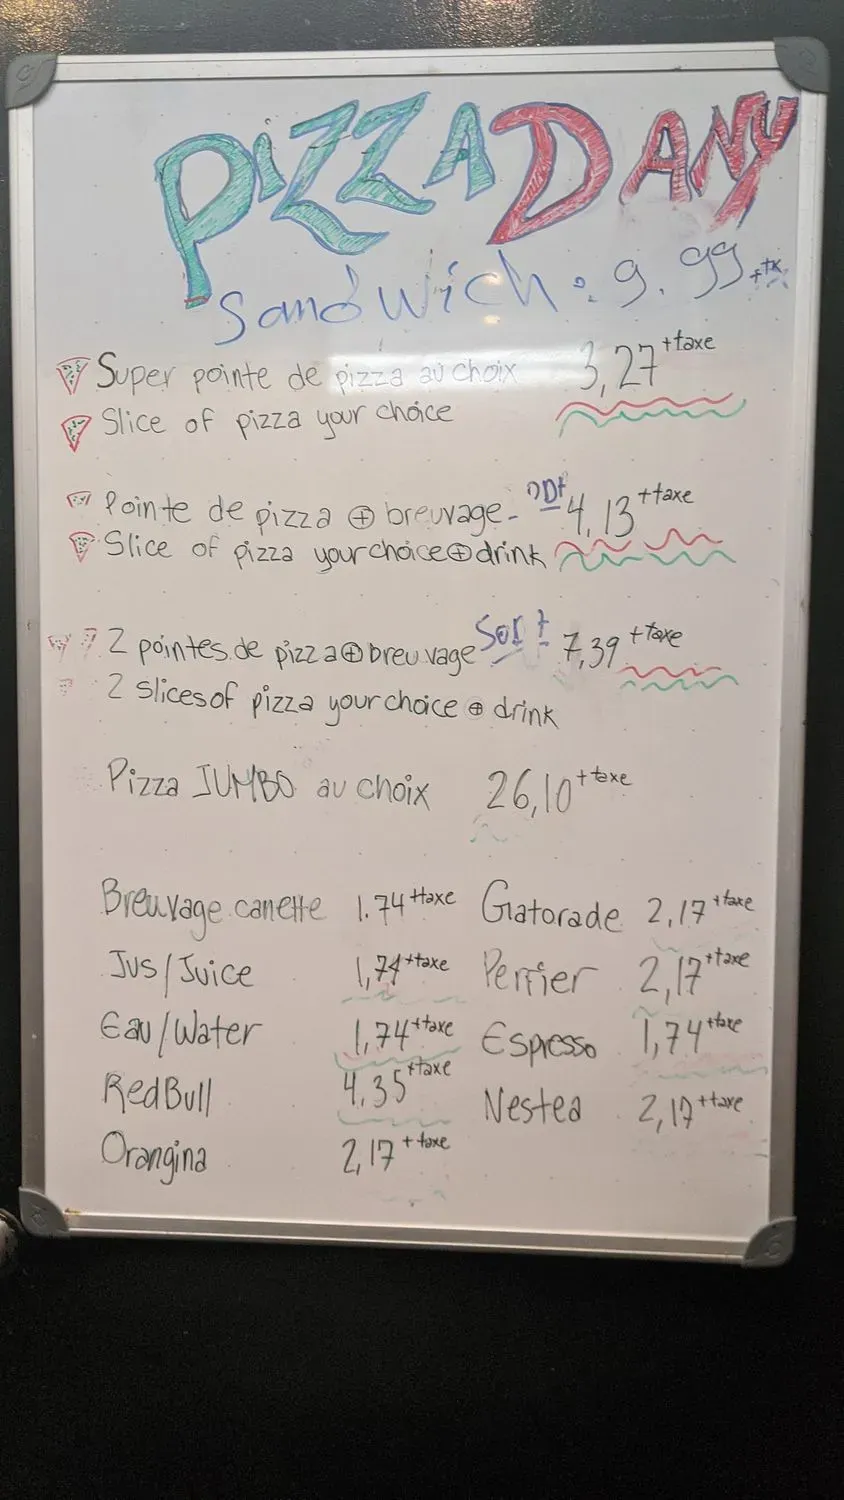 PIZZA DANY
Sandwich : 9.99 + tx
Super pointe de pizza au choix 3,27 + taxe
Slice of pizza your choice
Pointe de pizza ⊕ breuvage - 4,13 + taxe
Slice of pizza your choice ⊕ drink
2 pointes de pizza ⊕ breuvage 7,39 + taxe
2 slices of pizza your choice ⊕ drink
Pizza JUMBO au choix 26,10 + taxe
Breuvage canette 1.74 + taxe Gatorade 2,17 + taxe
Jus/Juice 1,74 + taxe Perrier 2,17 + taxe
Eau/Water 1,74 + taxe Espresso 1,74 + taxe
RedBull 4.35 + taxe Nestea 2,17 + taxe
Orangina 2,17 + taxe